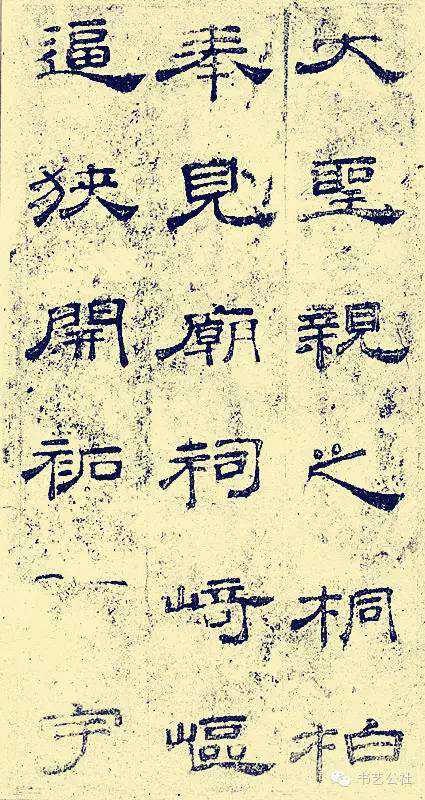 大聖親之桐柏
奉見廟祠崎嶇
逼狹開祏宇
书艺公社